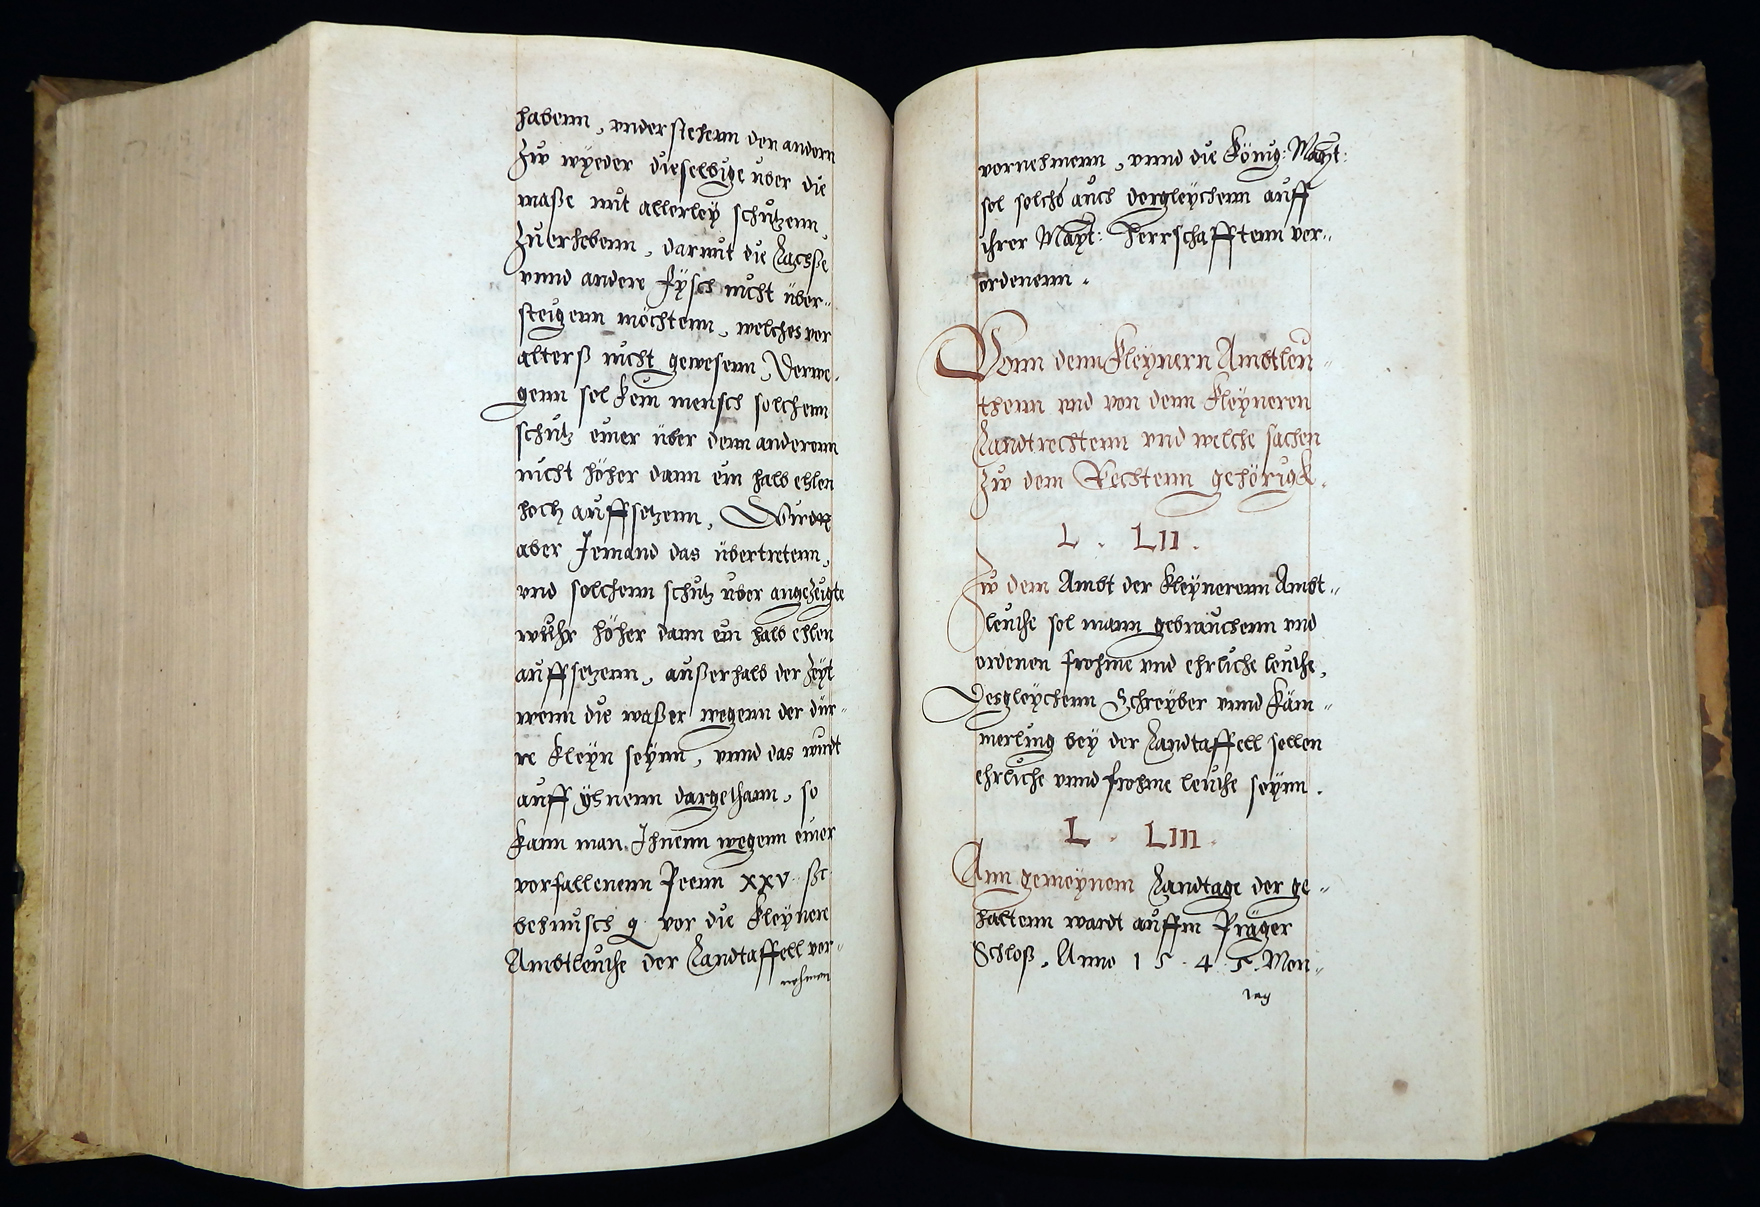 habenn, vnderstehenn den andern
zw wyeder dieselbige uber die
maße mit allerley schützenn,
zuerhebenn, darmit die Lachße
vnnd andere Fysch nicht über-
steigenn möchtenn, welches vor
alterß nicht gewesenn, Derwe-
genn sol kein mensch solchenn
schutz einer über denn anderenn
nicht höher dann ein halb ehlen
hoch auffsetzenn, Wurde
aber Jemand das übertretenn,
vnd solchenn schutz über angezeigte
wuhr höher dann ein halb ehlen
auffsetzenn, außerhalb der Zeyt
wenn die waßer wegenn der dür-
re kleyn seynn, vnnd das wirdt
auff yhnenn dargethann, so
kann man Ihnenn wegenn einer
vorfallenenn Peenn XXV ßc.
behmisch g. vor die kleynere
Ambtleuthe der Landtaffell vor-
nehmen
vornehmenn, vnnd die König: Mayt:
sol solchs auch dergleychenn auff
ihrer Mayt: Herrschafftenn ver-
ordenenn.
Vonn denn kleynern Ambtleu-
thenn vnd von denn kleyneren
Landtrechtenn vnd welche sachen
zw dem Rechtenn gehörigk.
L. LII.
Zw dem Ambt der kleynerenn Ambt-
leuthe sol mann gebrauchenn vnd
ordenen frohme vnd ehrliche leuthe,
Desgleychenn Schreyber vnnd Käm-
merling bey der Landtaffell sollen
ehrliche vnnd frohme leuthe seynn.
L. LIII.
Ann gemeynem Landtage der ge-
haltenn wardt auffm Präger
Schloß, Anno 1 5 4 5. Mon-
tag